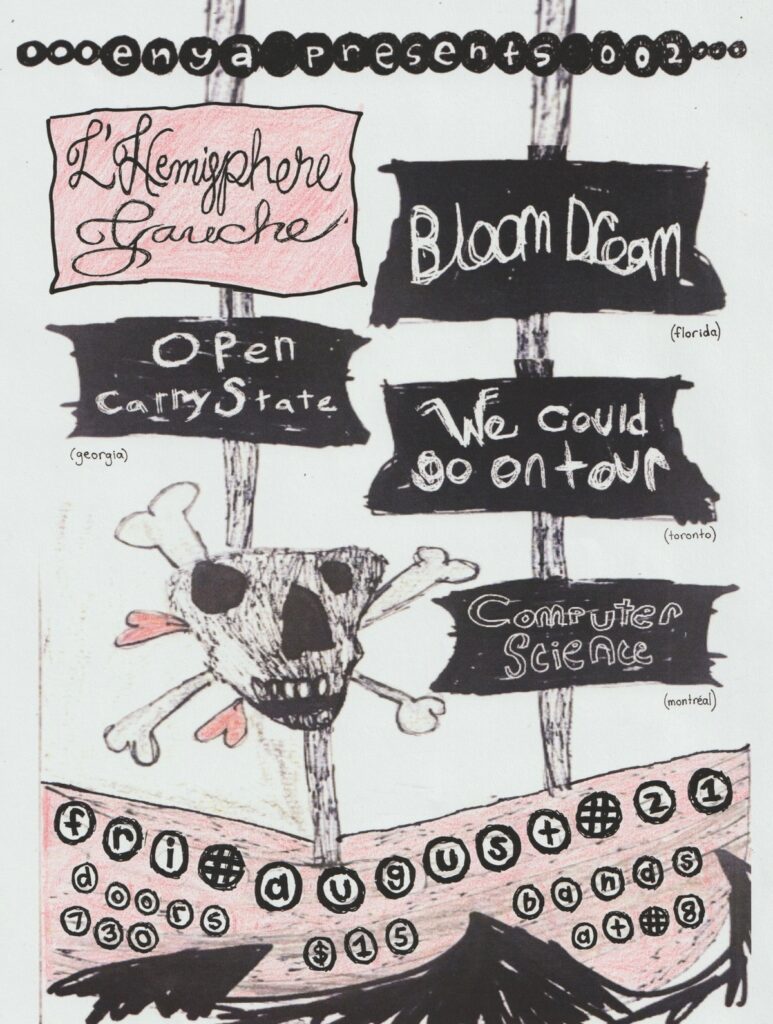 enya presents 002
L'Hemisphere
Gauche
Bloom Dream
(florida)
Open
Carry State
(georgia)
We could
go on tour
(toronto)
Computer
Science
(montréal)
fri # august # 21
doors
730
$15
bands
at # 8